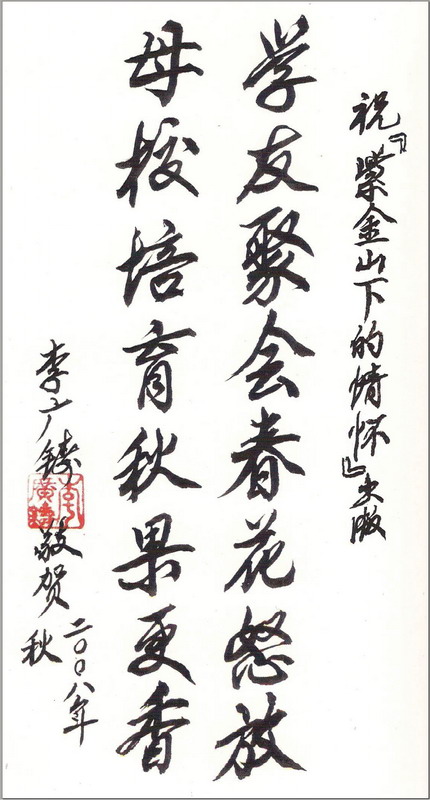 祝『紫金山下的情怀』出版
学友聚会春花怒放
母校培育秋果更香
李广铸敬贺
二〇〇八年
秋
李廣鑄